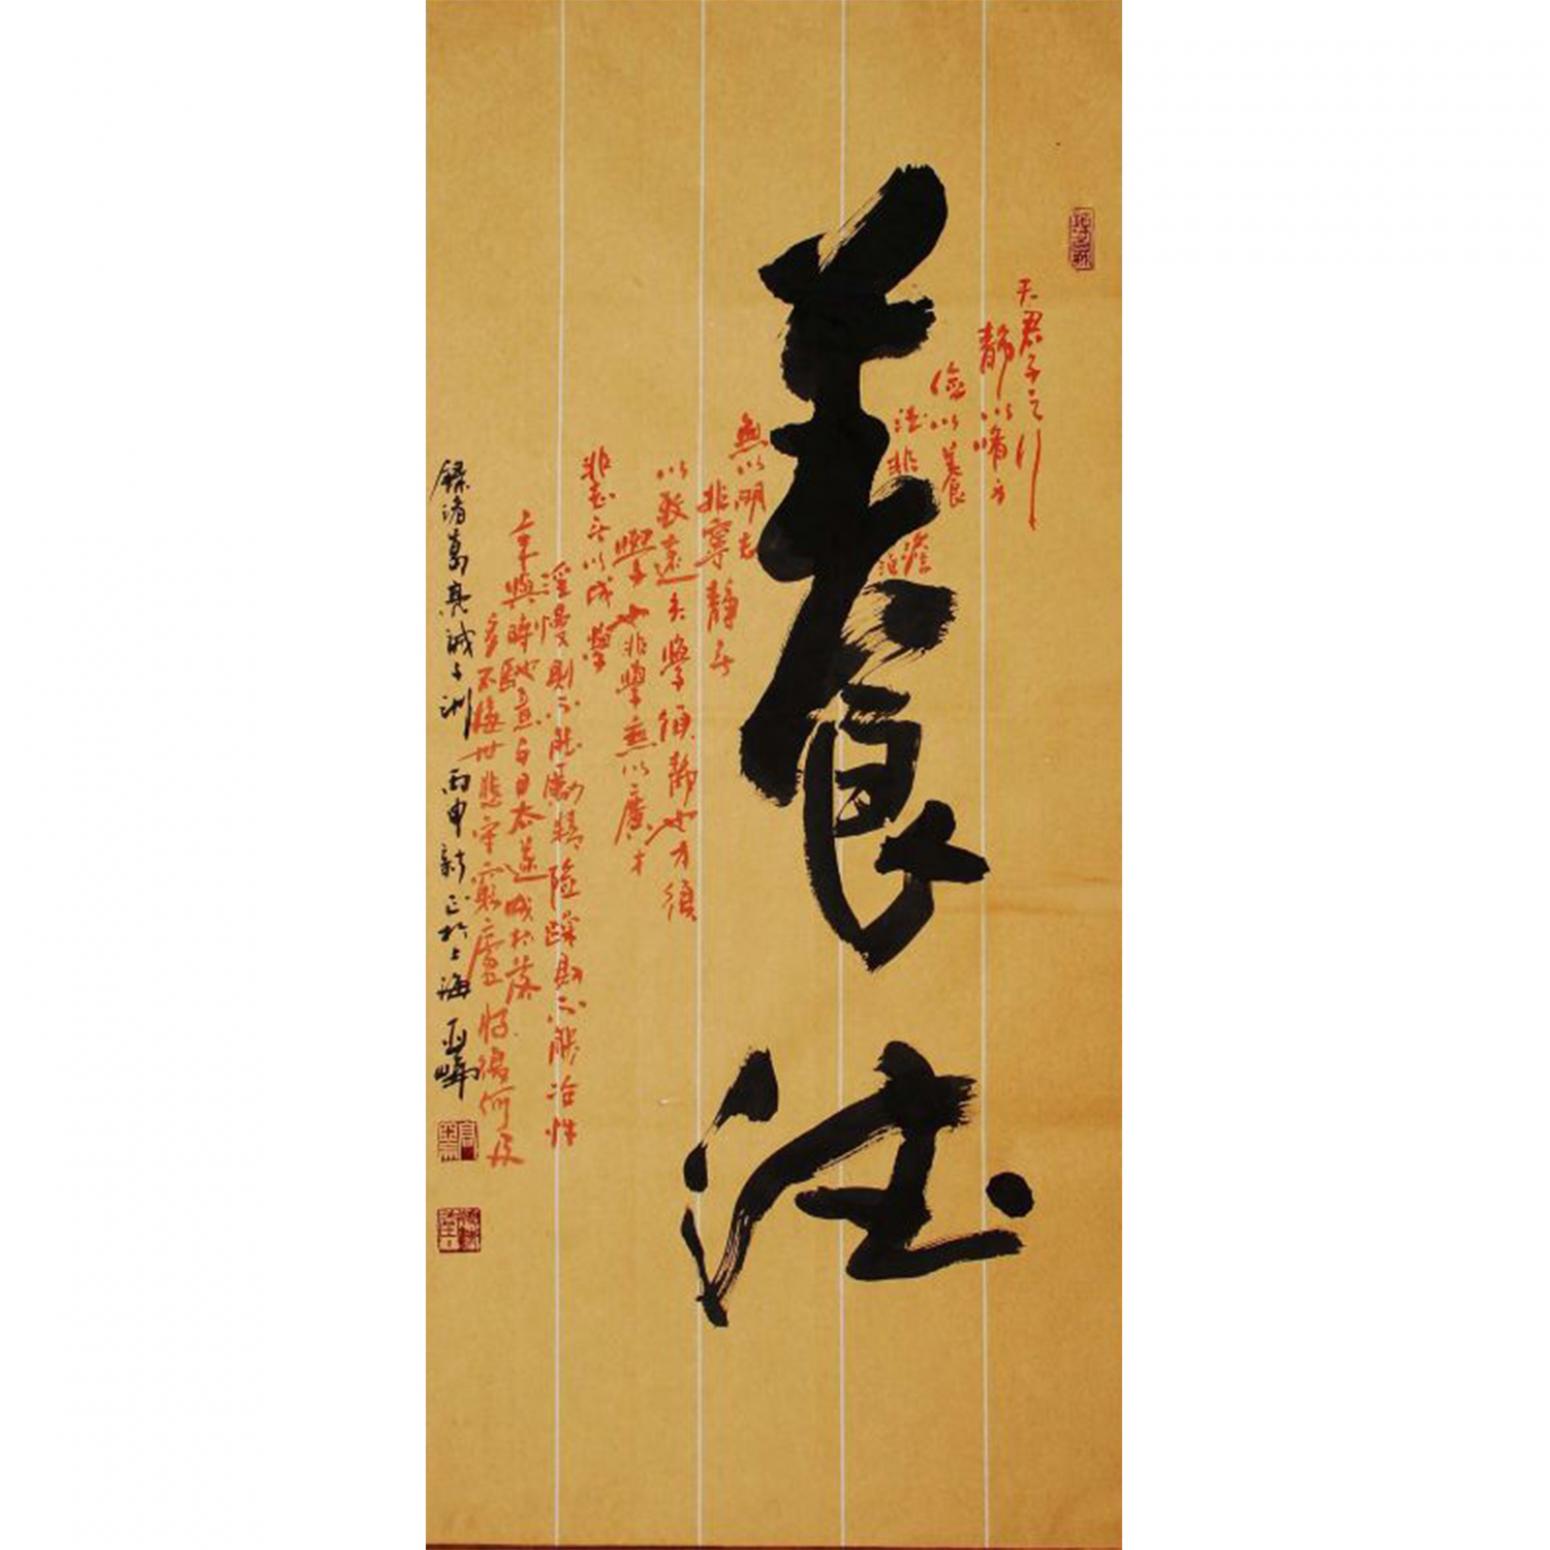 養德
夫君子之行
靜以脩身
儉以養
德非澹泊
無以明志
非寧靜無
以致遠夫學須靜也才須
學也非學無以廣才
非志無以成學
淫慢則不能勵精險躁則不能冶性
年與時馳意與日去遂成枯落
多不接世悲守窮廬將復何及
錄諸葛亮誡子 丙申新正於上海